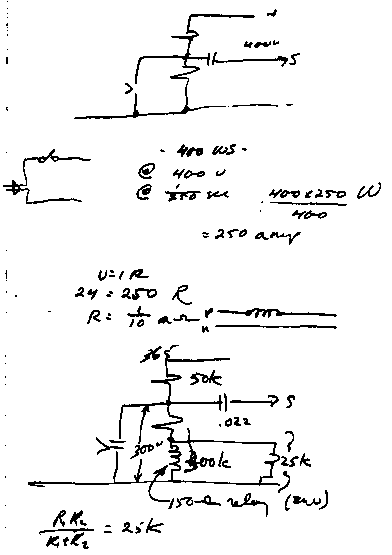 +
400v
S
- 400 WS -
@ 400 v
@ 1/250 sec
400 x 250 W
400
= 250 amp
V = I R
24 = 250 R
R = 1/10 ohm
P
N
365
50K
S
.022
300v
400K
25K
150 Ω relay (24v)
R₁R₂
R₁+R₂
= 25K